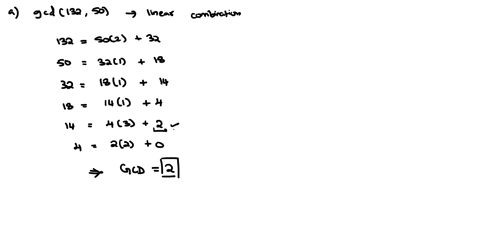 a) gcd(132, 50) → linear combination
132 = 50(2) + 32
50 = 32(1) + 18
32 = 18(1) + 14
18 = 14(1) + 4
14 = 4(3) + 2 ✓
4 = 2(2) + 0
⇒ GCD = 2